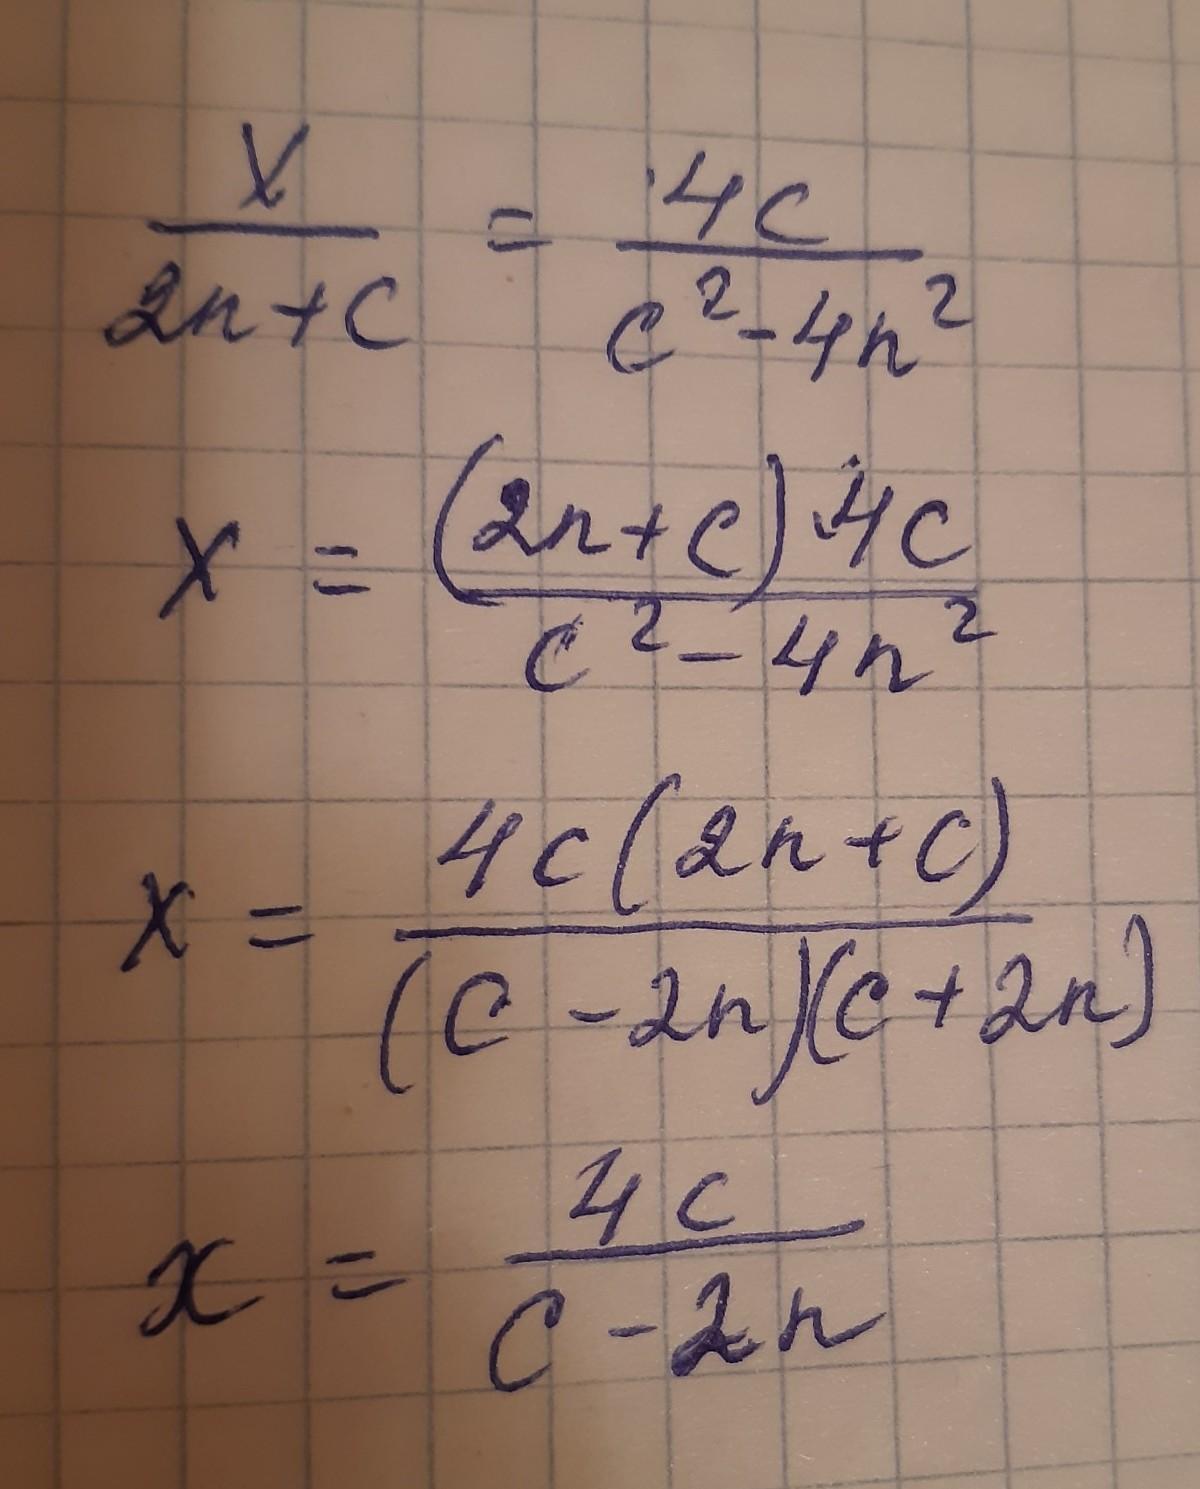 X/(2n+c) = 4c/(c²-4n²)
x = (2n+c)·4c/(c²-4n²)
x = 4c(2n+c)/((c-2n)(c+2n))
x = 4c/(c-2n)